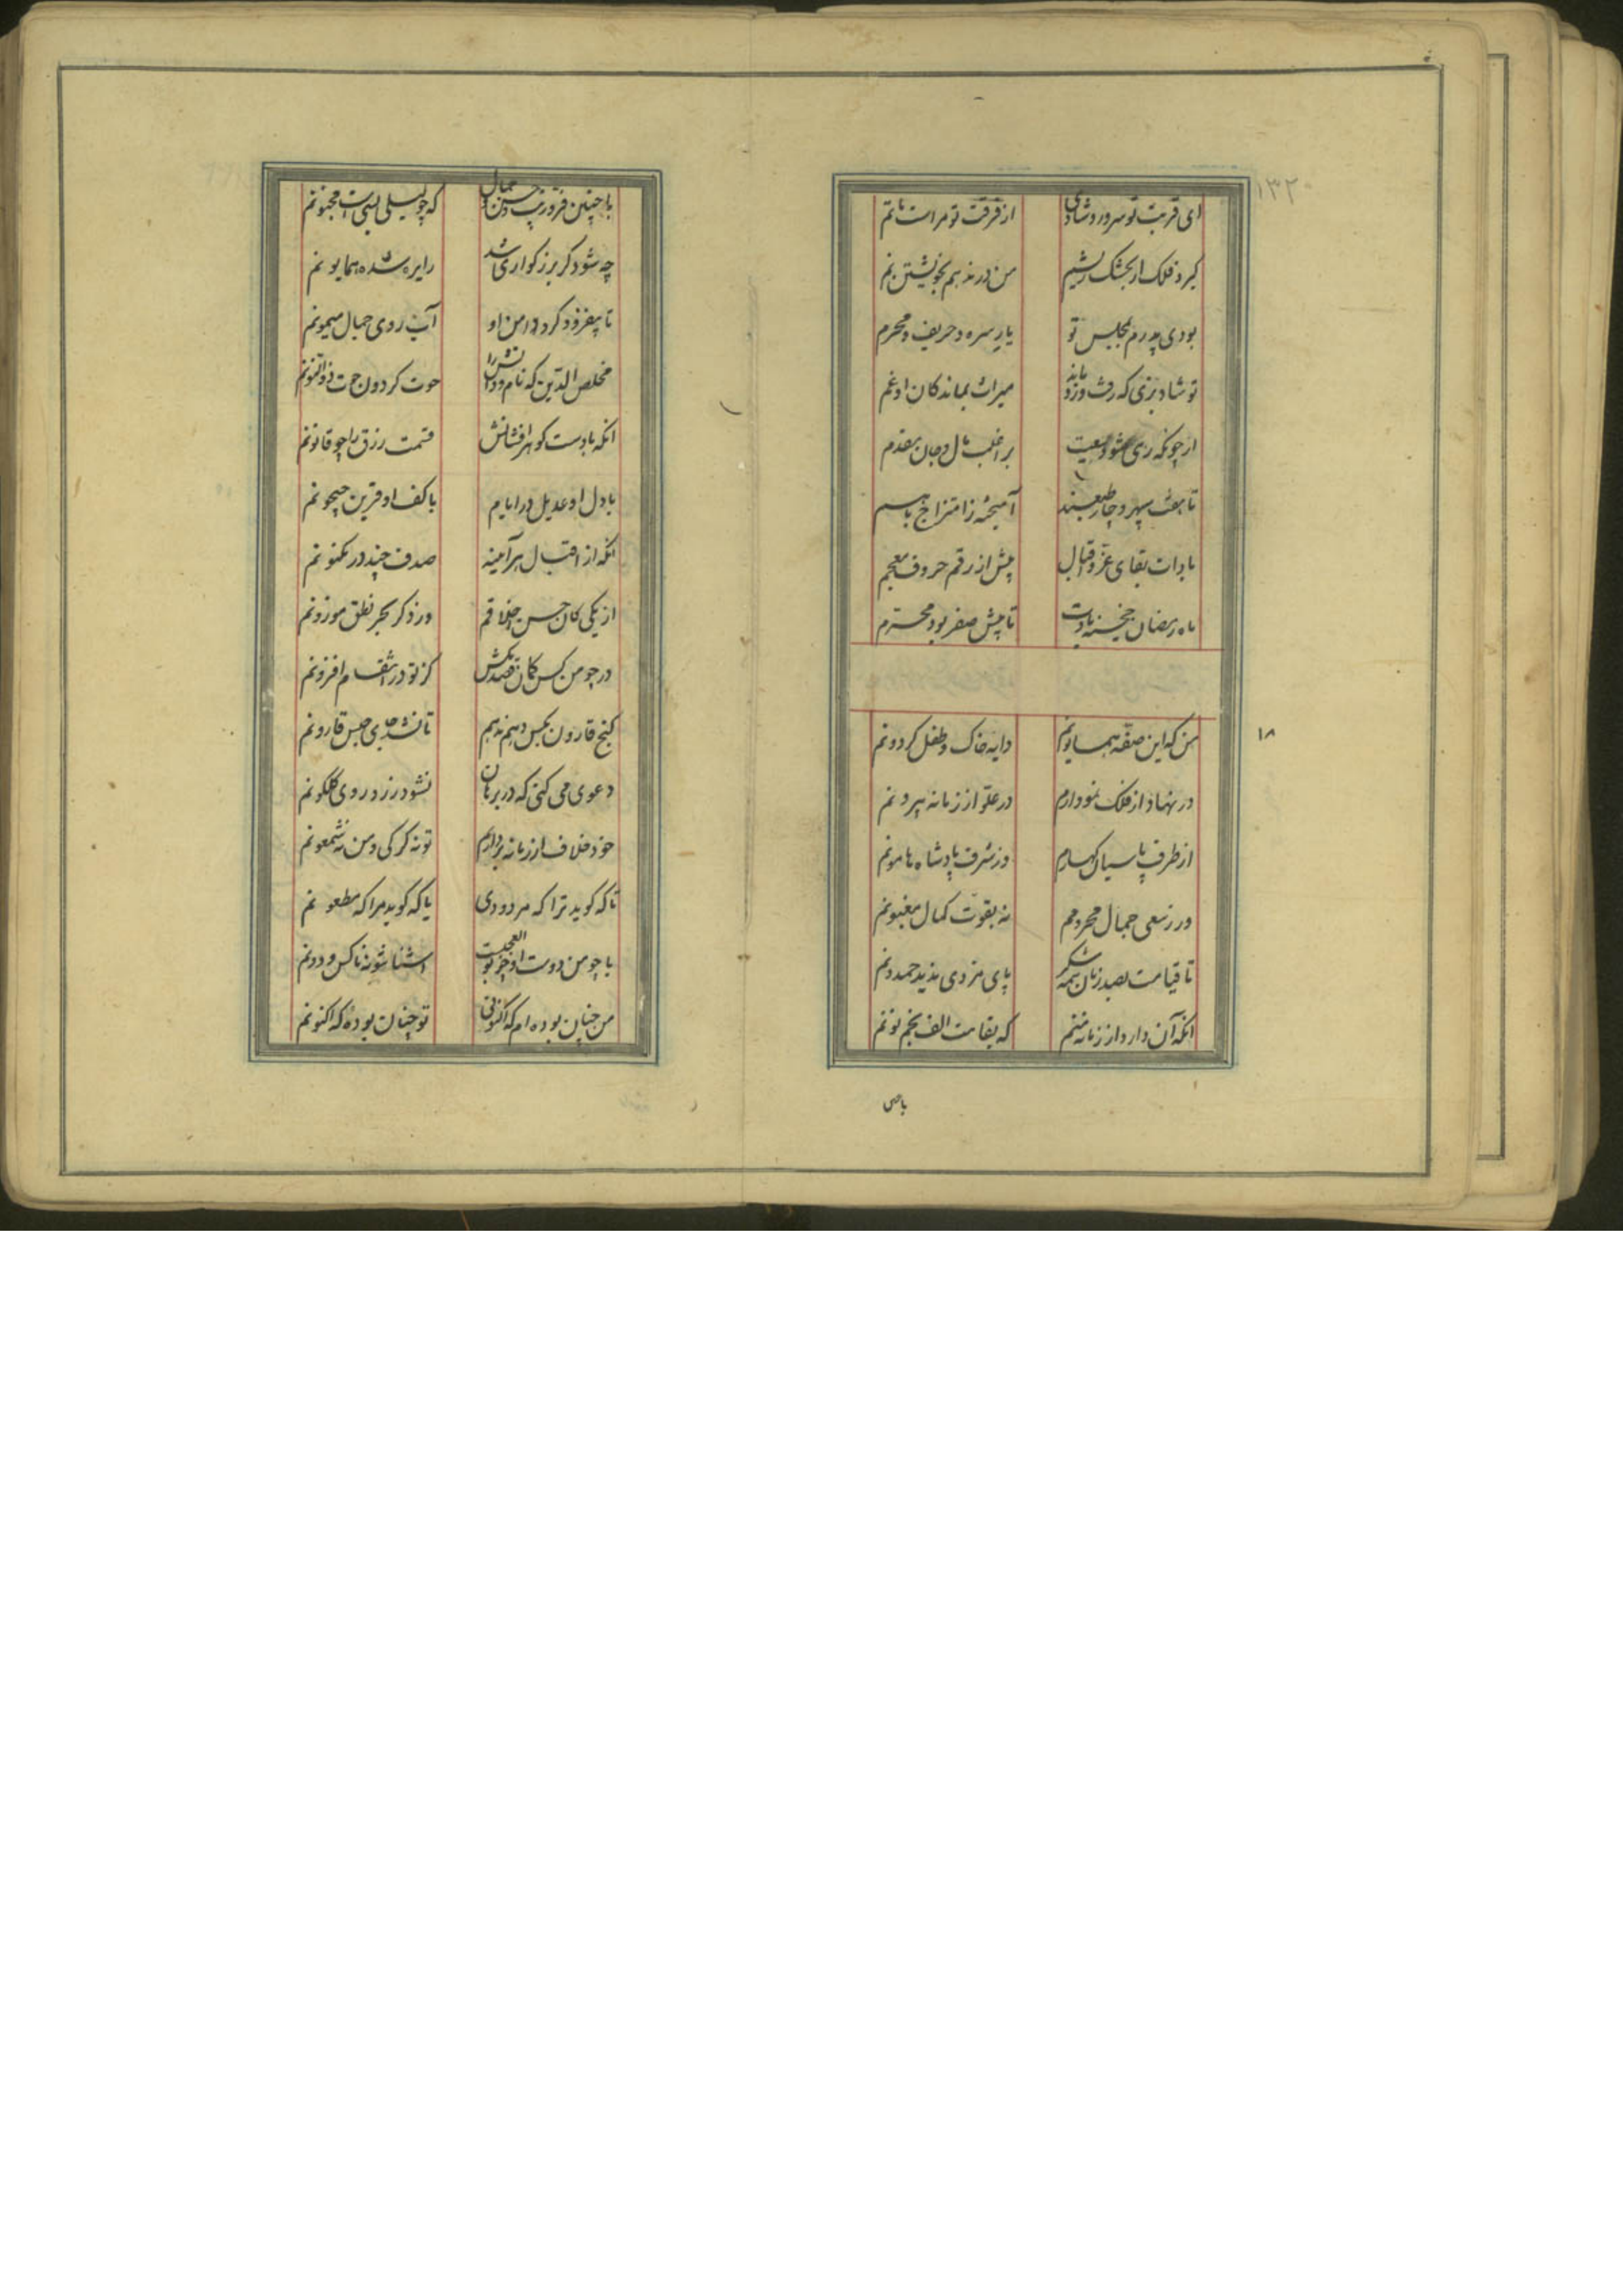 ۱۳۲
ای قربت تو سرور و شادی از فرقت تو مراست ماتم
کیرد فلک ار بخشک ریشیم من در ندهم بخویشتن نم
بودی پدرم بمجلس تو یار سره و حریف و محرم
تو شاد بزی که رفت وزو ماند میراث بماندکان او غم
تا هفت سپهر و چار طبعند آمیخته ز امتزاج باهم
بادات بقای عز و اقبال پیش از رقم حروف معجم
ماه رمضان خجسته بادت تا پیش صفر بود محرم
۱۸
من که این صفه همایونم دایه خاک و طفل کردونم
در نهاد از فلک نمودارم در علو از زمانه بیرونم
از طرف پاسبان کهسارم وز شرف پادشاه هامونم
ور ز سعی جمال محرومم نه بقوت کمال مغبونم
تا قیامت بصد زبان همه شکر پای مزدی مذید حمدونم
انکه آن دارد از زمانه منم که بقامت الف بخم نونم
باچنین
با چنین فر و زیب و حسن و جمال که چو لیلی بسیست مجنونم
چه شود کر بزرکواری شد را بره شده همایونم
تا بیفزود کرد دامن او آب روی جمال میمونم
مخلص الدین که نام و دانش را حوت کردون حوت ذوالنونم
انکه با دست کوهر افشانش قسمت رزق را چو قانونم
با دل او عدیل در ایایم با کف او قرین جیحونم
انکه از اقبال هر آمینه صدف چند در مکنونم
از یکی کان حسن اخلاقم وز دکر بحر نطق موزونم
کز تو در انتقام افزونم
کنج قارون بکس دهم ندهم تا نشد پی حبس قارونم
دعوی می کنی که در برهان نشود زرد روی کلکونم
خود خلاف از زمانه بردارم تو نه کرکی و من نه شمعونم
تا که کوید ترا که مردودی یا که کوید مرا که مطعونم
با چو من دوست او چو تو العجبیست آشنا شو نه ناکس و دونم
من چنان بوده ام که اکنونی تو چنان بودهٔ که اکنونم